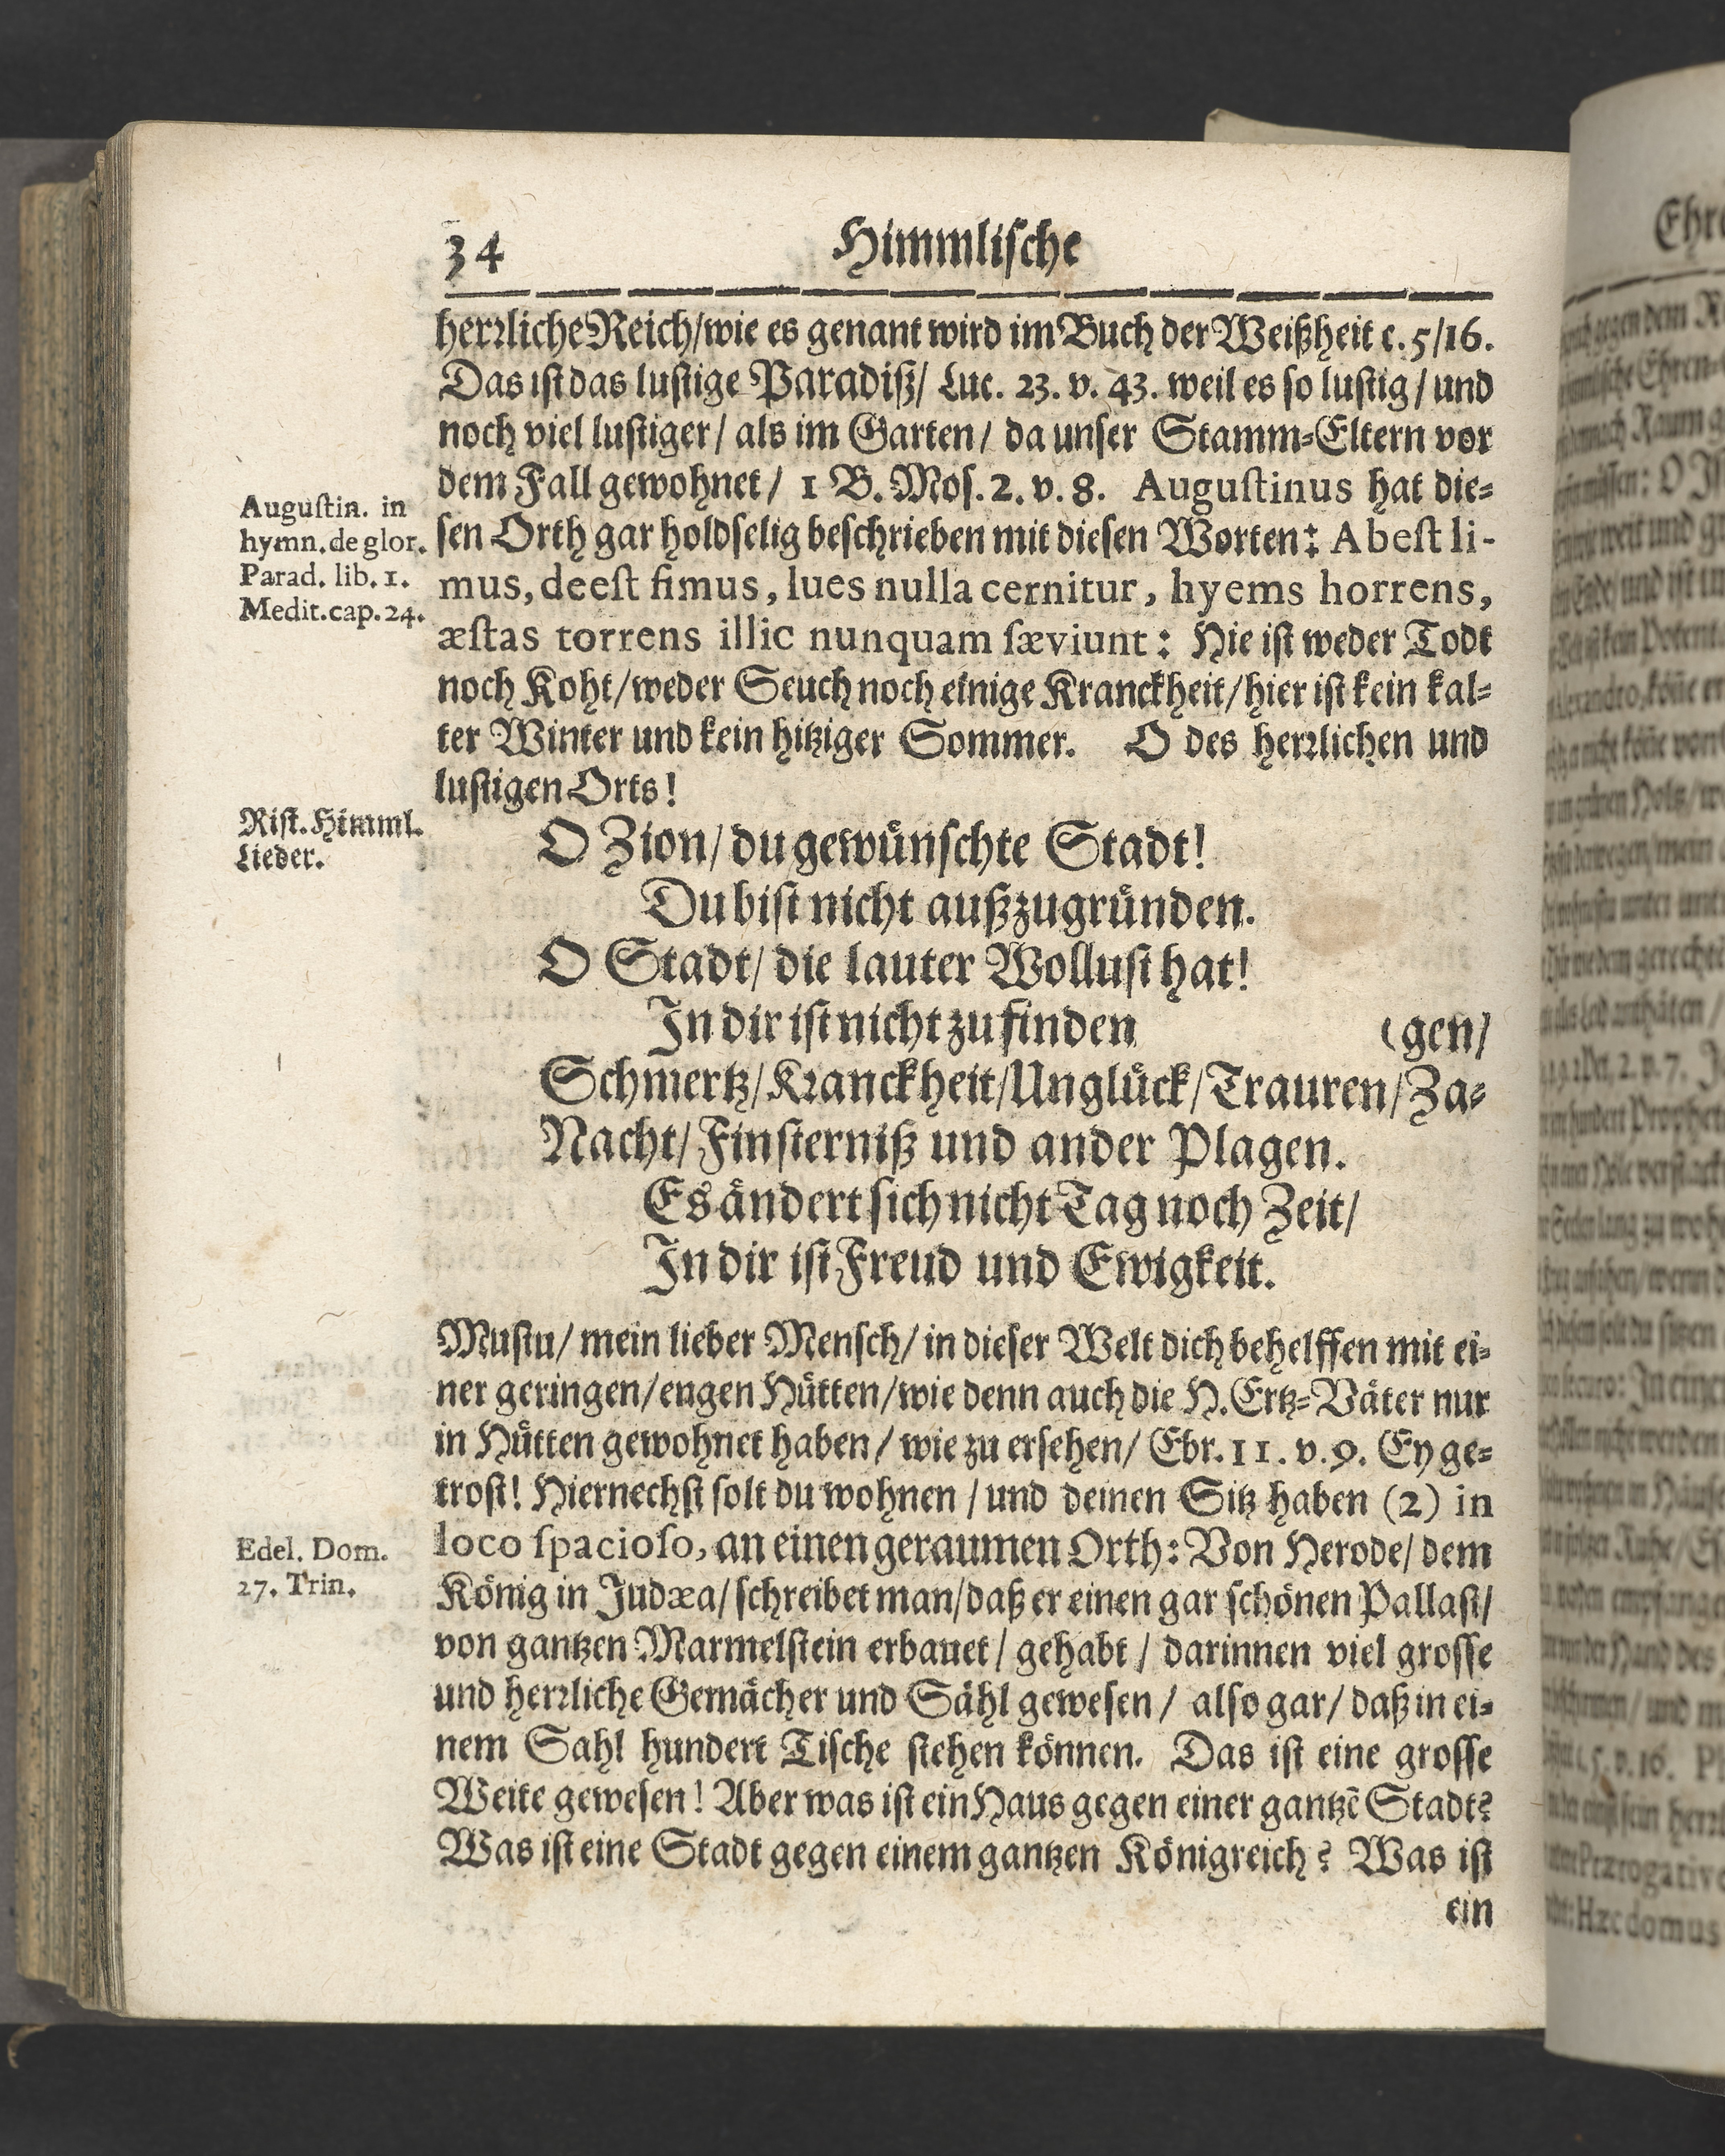 34 Himmlische
herꝛliche Reich/wie es genant wird im Buch der Weißheit c. 5/16.
Das ist das lustige Paradiß/ Luc. 23. v. 43. weil es so lustig/ und
noch viel lustiger/ als im Garten/ da unser Stamm-Eltern vor
dem Fall gewohnet/ 1 B. Mos. 2. v. 8. Augustinus hat die-
Augustin. in
hymn. de glor.
Parad. lib. 1.
Medit. cap. 24.
sen Orth gar holdselig beschrieben mit diesen Worten: Abest li-
mus, deest fimus, lues nulla cernitur, hyems horrens,
æstas torrens illic nunquam sæviunt: Hie ist weder Todt
noch Koht/weder Seuch noch einige Kranckheit/hier ist kein kal-
ter Winter und kein hitziger Sommer. O des herꝛlichen und
lustigen Orts!
Rist. Himml.
Lieder.
O Zion/ du gewünschte Stadt!
Du bist nicht außzugründen.
O Stadt/ die lauter Wollust hat!
In dir ist nicht zu finden (gen/
Schmertz/Kranckheit/Unglück/Trauren/Za-
Nacht/Finsterniß und ander Plagen.
Es ändert sich nicht Tag noch Zeit/
In dir ist Freud und Ewigkeit.
Mustu/ mein lieber Mensch/ in dieser Welt dich behelffen mit ei-
ner geringen/engen Hütten/wie denn auch die H. Ertz-Väter nur
in Hütten gewohnet haben/ wie zu ersehen/ Ebr. 11. v. 9. Ey ge-
trost! Hiernechst solt du wohnen/ und deinen Sitz haben (2) in
Edel. Dom.
27. Trin.
loco spacioso, an einen geraumen Orth: Von Herode/ dem
König in Judæa/ schreibet man/daß er einen gar schönen Pallast/
von gantzen Marmelstein erbauet/ gehabt/ darinnen viel grosse
und herꝛliche Gemächer und Sähl gewesen/ also gar/ daß in ei-
nem Sahl hundert Tische stehen können. Das ist eine grosse
Weite gewesen! Aber was ist ein Haus gegen einer gantzẽ Stadt?
Was ist eine Stadt gegen einem gantzen Königreich? Was ist
ein